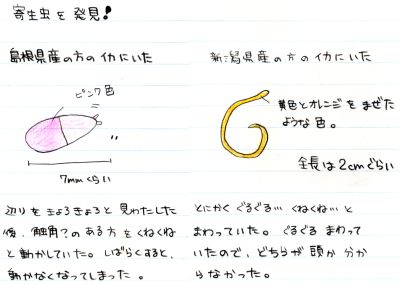 寄生虫を発見!
島根県産の方のイカにいた
ピンク色
7mmぐらい
辺りをきょろきょろと見わたした
後、触角?のある方をくねくね
と動かしていた。しばらくすると、
動かなくなってしまった。
新潟県産の方のイカにいた
黄色とオレンジをまぜた
ような色。
全長は2cmぐらい
とにかくぐるぐる…くねくね…と
まわっていた。ぐるぐるまわって
いたので、どちらが頭か分か
らなかった。